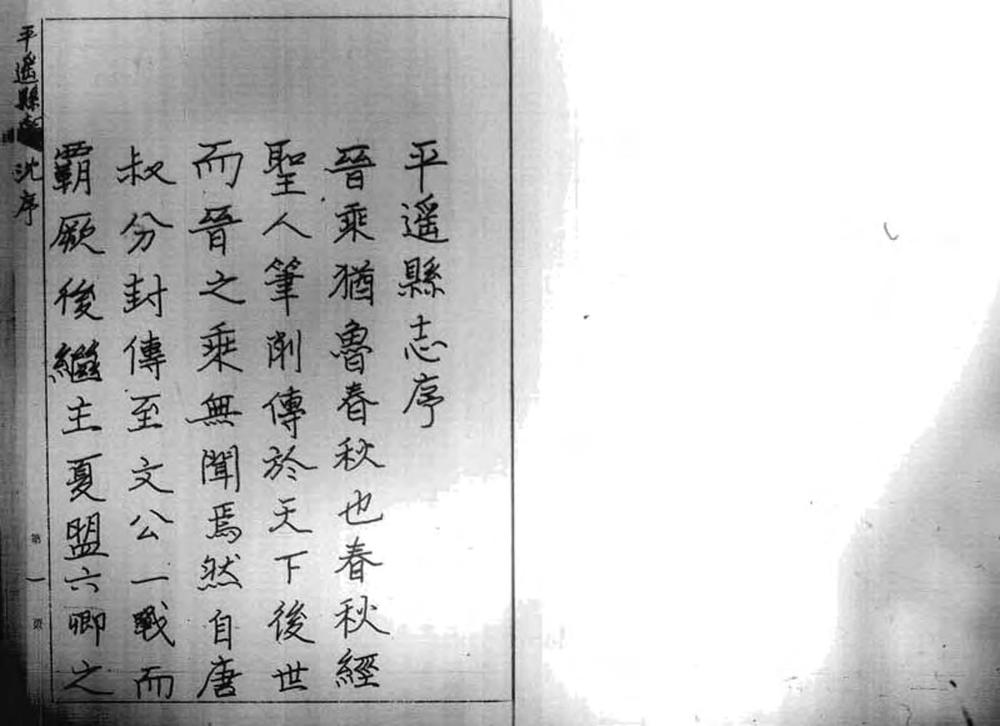 平遙縣志序
晉乘猶魯春秋也春秋經
聖人筆削傳於天下後世
而晉之乘無聞焉然自唐
叔分封傳至文公一戰而
霸厥後繼主夏盟六卿之
平遙縣志 沈序
第一頁